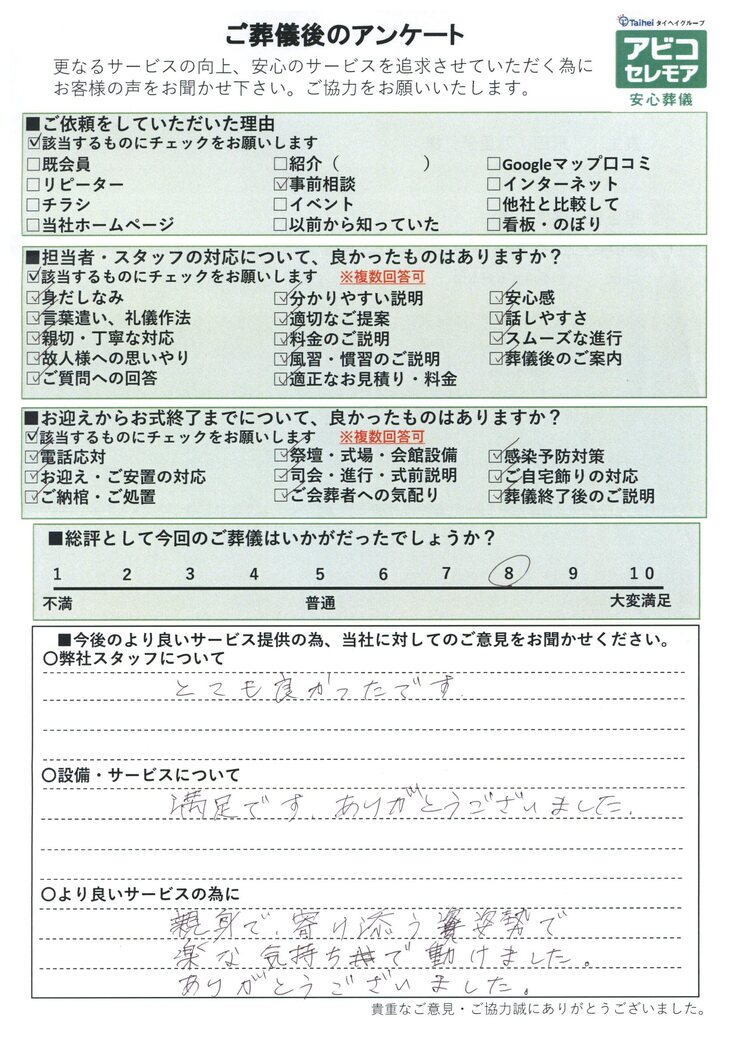 ご葬儀後のアンケート
Taihei タイヘイグループ
アビコ
セレモア
安心葬儀
更なるサービスの向上、安心のサービスを追求させていただく為に
お客様の声をお聞かせ下さい。ご協力をお願いいたします。
■ご依頼をしていただいた理由
☑該当するものにチェックをお願いします
□既会員 □紹介（　　　　　） □Googleマップ口コミ
□リピーター ☑事前相談 □インターネット
□チラシ □イベント □他社と比較して
□当社ホームページ □以前から知っていた □看板・のぼり
■担当者・スタッフの対応について、良かったものはありますか？
☑該当するものにチェックをお願いします ※複数回答可
☑身だしなみ ☑分かりやすい説明 ☑安心感
☑言葉遣い、礼儀作法 ☑適切なご提案 ☑話しやすさ
☑親切・丁寧な対応 ☑料金のご説明 ☑スムーズな進行
☑故人様への思いやり ☑風習・慣習のご説明 ☑葬儀後のご案内
☑ご質問への回答 ☑適正なお見積り・料金
■お迎えからお式終了までについて、良かったものはありますか？
☑該当するものにチェックをお願いします ※複数回答可
☑電話応対 ☑祭壇・式場・会館設備 ☑感染予防対策
☑お迎え・ご安置の対応 ☑司会・進行・式前説明 ☑ご自宅飾りの対応
☑ご納棺・ご処置 ☑ご会葬者への気配り ☑葬儀終了後のご説明
■総評として今回のご葬儀はいかがだったでしょうか？
1 2 3 4 5 6 7 8 9 10
不満 普通 大変満足
■今後のより良いサービス提供の為、当社に対してのご意見をお聞かせください。
〇弊社スタッフについて
とても良かったです.
〇設備・サービスについて
満足です. ありがとうございました.
〇より良いサービスの為に
親身で、寄り添う姿勢で
楽な気持ちで動けました。
ありがとうございました。
貴重なご意見・ご協力誠にありがとうございました。